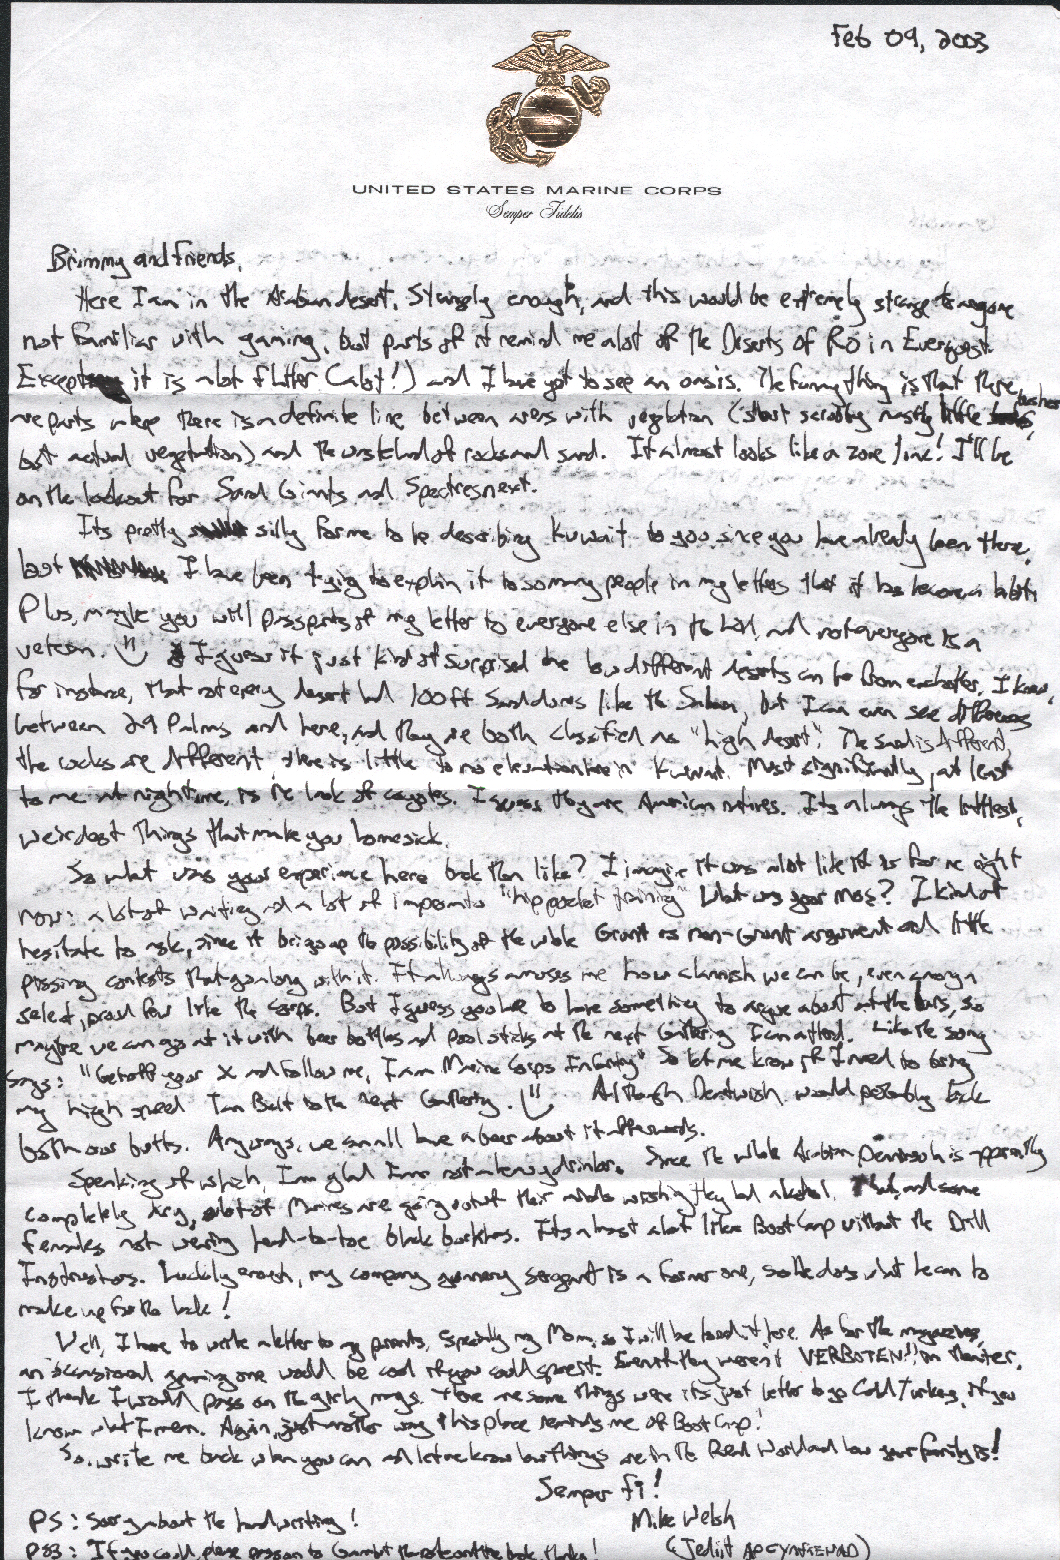 Feb 09, 2003
UNITED STATES MARINE CORPS
Semper Fidelis
Brimmy and Friends,
Here I am in the Arabian desert. Strangely enough, and this would be extremely strange to anyone
not familiar with gaming, but parts of it remind me alot of the Deserts of Ro in Everquest.
Except it is alot flatter (alot!) and I have yet to see an oasis. The funny thing is that there
are parts where there is a definite line between areas with vegetation (short scrubby mostly little bushes,
but actual vegetation) and the wasteland of rocks and sand. It almost looks like a zone line! I'll be
on the lookout for Sand Giants and Spectres next.
Its pretty silly for me to be describing Kuwait to you, since you have already been there,
but I have been trying to explain it to so many people in my letters that it has become a habit.
Plus, maybe you will pass parts of my letter to everyone else in the and not everyone is a
veteran. I guess it just kind of surprised me how different deserts can be from eachother. I knew,
for instance, that not every desert had 100 ft Sand dunes like the Sahara, but I can even see differences
between 29 Palms and here, and they are both classified as "high desert". The sand is different,
the rocks are different, there is little to no elevation here in Kuwait. Most significantly, at least
to me at nighttime, is the lack of coyotes. I guess they are American natives. Its always the littlest,
weirdest things that make you homesick.
So what was your experience here back then like? I imagine it was alot like it is for me right
now: a lot of waiting and a lot of impromtu "hip pocket training" What was your MOS? I kind of
hesitate to ask, since it brings up the possibility of the whole Grunt vs non-Grunt argument and little
pissing contests that go along with it. It always amuses me how clannish we can be, even among a
select, proud few like the Corps. But I guess you have to have something to argue about at the bars, so
maybe we can go at it with beer bottles and pool sticks at the next Gathering I can attend. Like the song
says: "Get off your X and follow me, I am Marine Corps Infantry" So let me know if I need to bring
my high speed Tan Belt to the next Gathering. Although Dentwish would probably kick
both our butts. Anyways, we can all have a beer about it afterwards.
Speaking of which, I am glad I am not a heavy drinker. Since the whole Arabian Peninsula is apparently
completely dry, alot of Marines are going out of their minds wishing they had alcohol. That, and some
females not wearing head-to-toe black burkhas. Its almost alot like Boot Camp without the Drill
Instructors. Luckily enough, my company gunnery sergeant is a former one, so he does what he can to
make up for the lack!
Well, I have to write a letter to my parents, specially my Mom, so I will be it here. As for the magazines,
an occasional gaming one would be cool if you could spare it. Even if they weren't VERBOTEN!! in theater,
I think I would pass on the girly mags. There are some things were its just better to go Cold Turkey, if you
know what I mean. Again, just another way this place reminds me of Boot Camp!
So, write me back when you can and let me know how things are in the Real World and how your family is!
Semper Fi!
PS: Sorry about the handwriting! Mike Welsh
PSS: If you could, please pass on to Gambit the note on the back, thanks! (Jediit